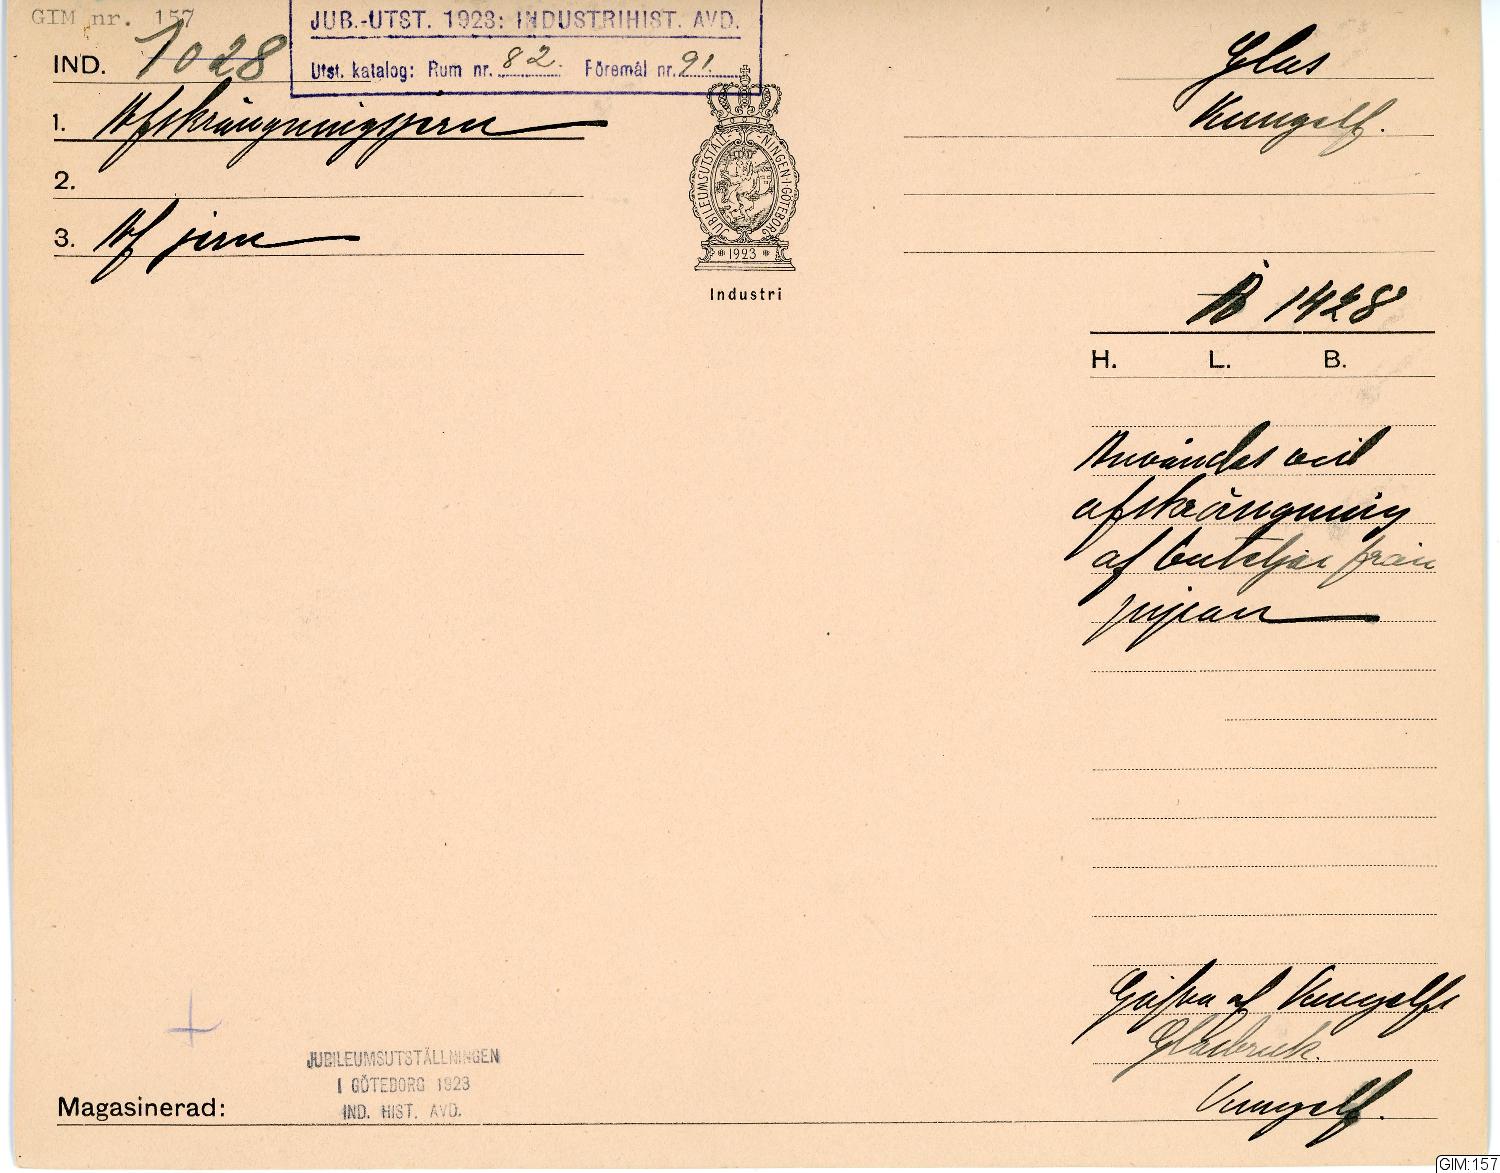 GIM nr. 157
JUB.-UTST. 1923: INDUSTRIHIST. AVD.
IND. 1028
Utst. katalog: Rum nr. 82. Föremål nr. 91.
Glas
Kungelf.
1. Afskrängningsjern
2.
3. Af jern
JUBILEUMSUTSTÄLL-NINGEN·I·GÖTEBORG
1923
Industri
1428
H. L. B.
Användes vid
afskrängning
af buteljer från
pipan
Gåfva af Kungelfs
Glasbruk.
Kungelf.
JUBILEUMSUTSTÄLLNINGEN
I GÖTEBORG 1923
IND. HIST. AVD.
Magasinerad:
GIM:157